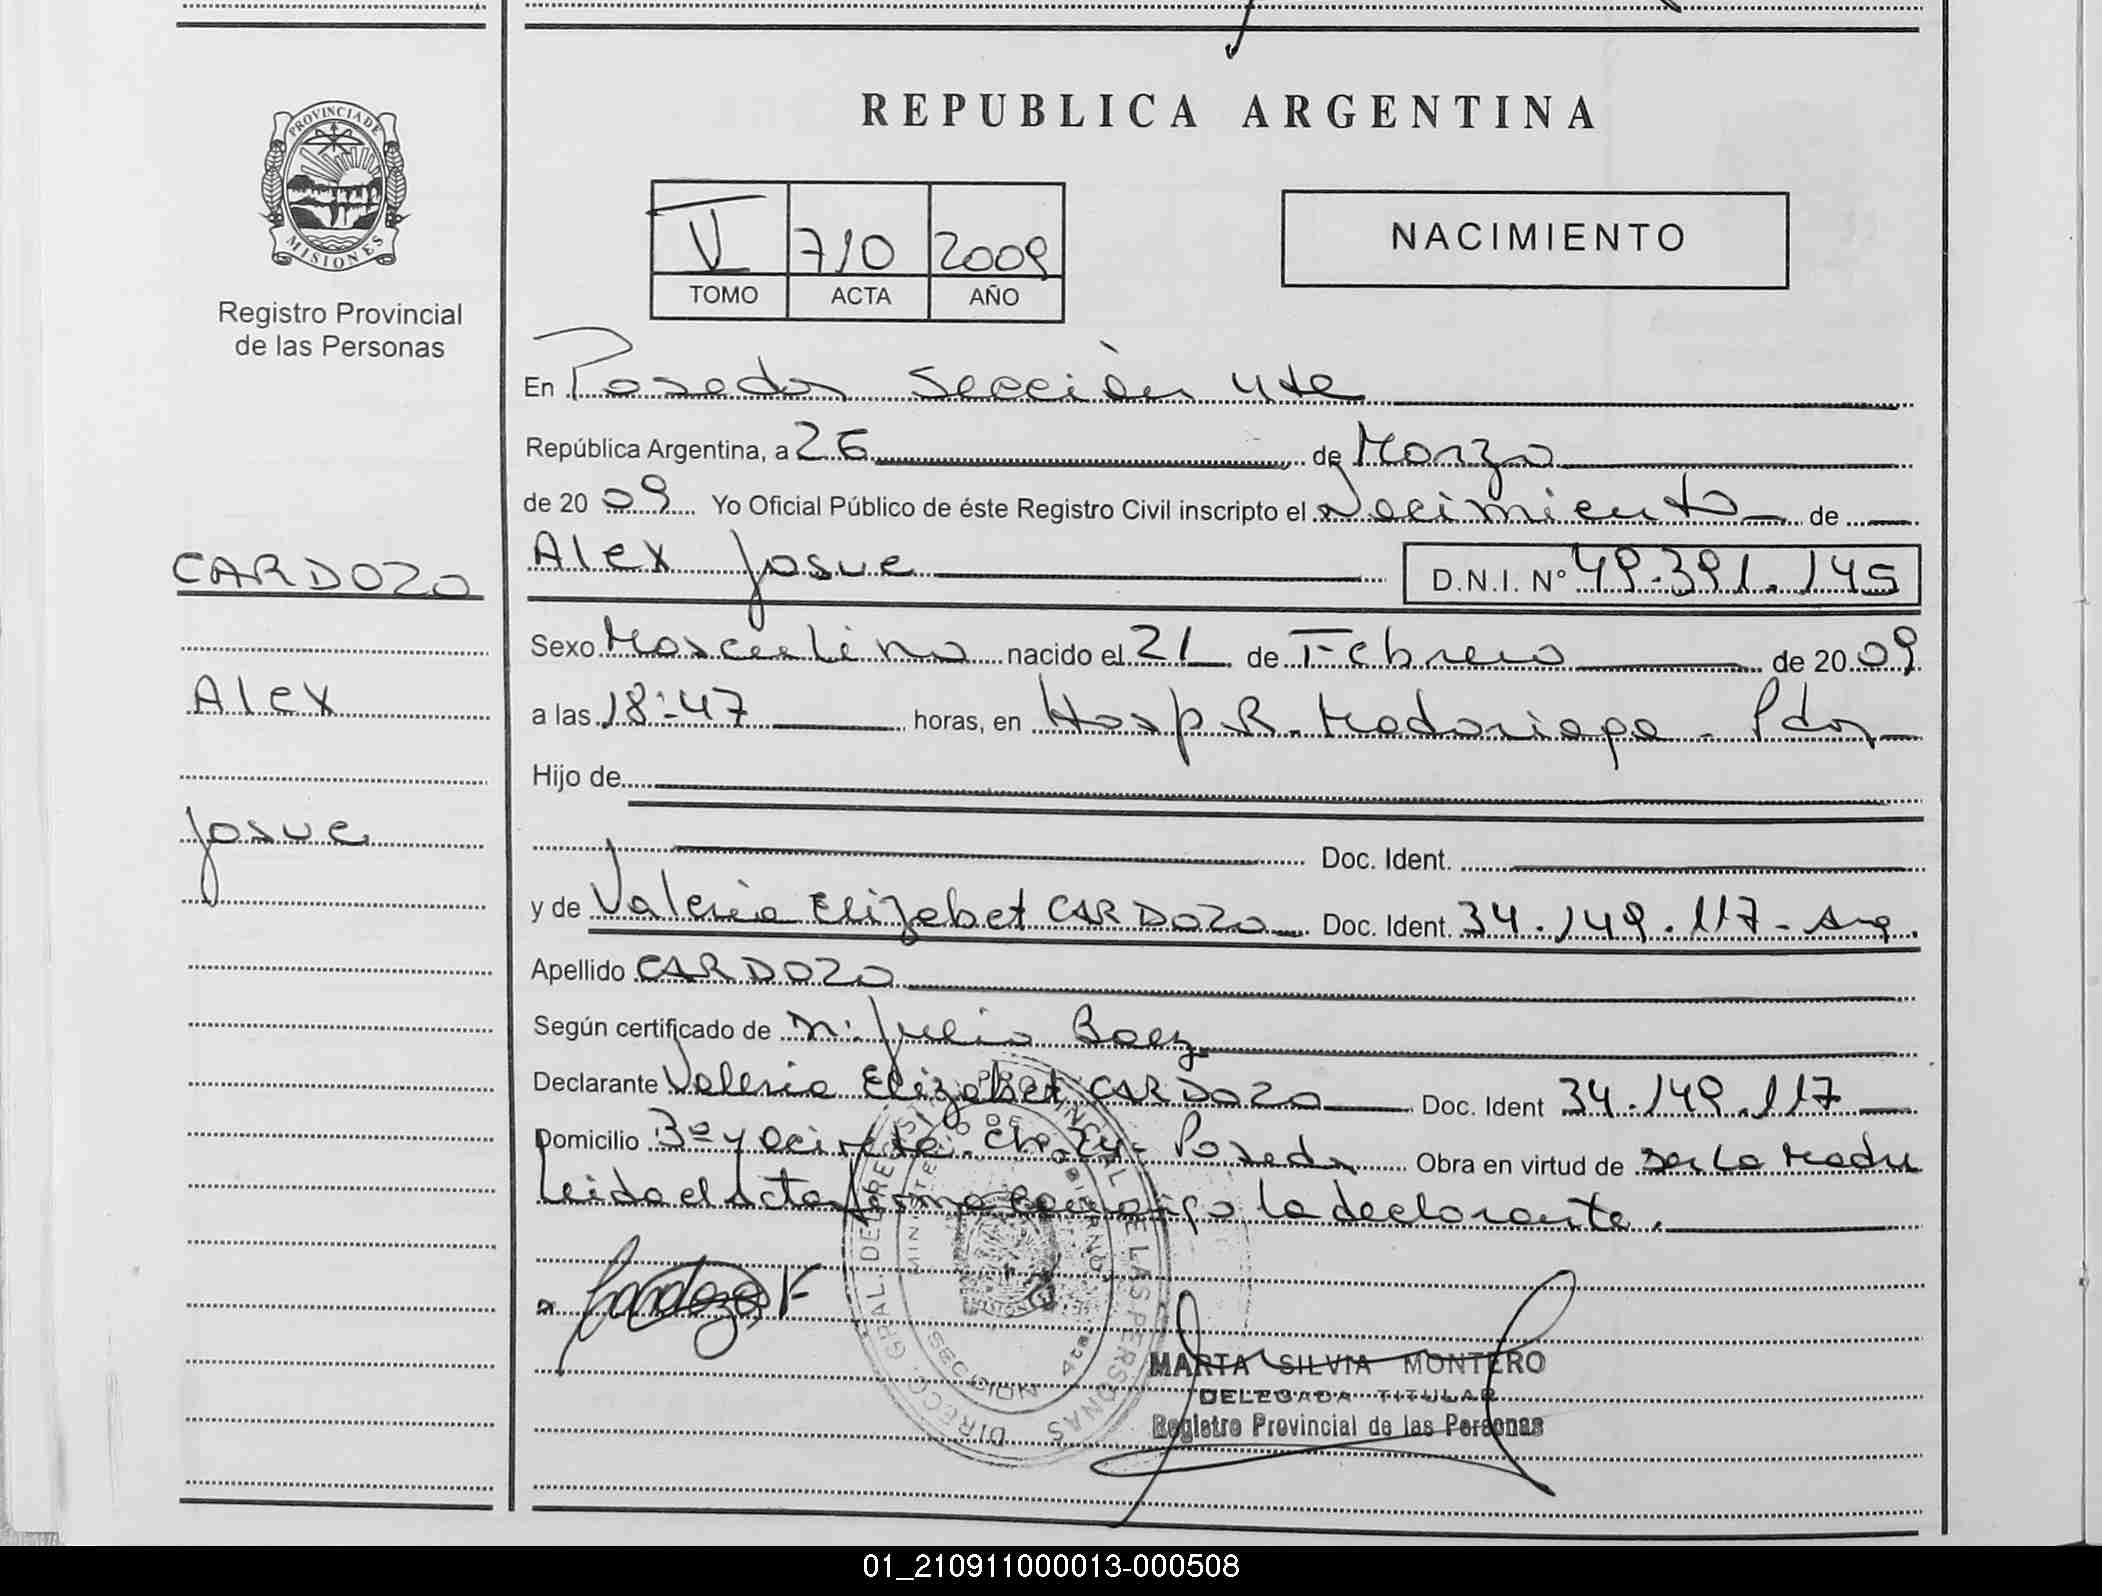 PROVINCIA DE
MISIONES
Registro Provincial
de las Personas
CARDOZO
Alex
Josue
REPUBLICA ARGENTINA
V 710 2009
TOMO ACTA AÑO
NACIMIENTO
En Posadas Sección 4ta
República Argentina, a 26 de Marzo
de 2009 Yo Oficial Público de éste Registro Civil inscripto el Nacimiento de
Alex Josue D.N.I. Nº 49.391.145
Sexo Masculino nacido el 21 de Febrero de 2009
a las 18:47 horas, en Hosp R. Madariaga - Pdas
Hijo de
Doc. Ident.
y de Valeria Elizabet CARDOZO Doc. Ident. 34.149.117 - Arg.
Apellido CARDOZO
Según certificado de Julio Baez
Declarante Valeria Elizabet CARDOZO Doc. Ident 34.149.117
Domicilio Bº Posadas Obra en virtud de ser la Madre
Leida el Acta firma conmigo la declarante.
Cardozo V
DIRECC. GRAL. DEL REGISTRO PROVINCIAL DE LAS PERSONAS
MINISTERIO DE GOBIERNO
SECCION 4ta
MARTA SILVIA MONTERO
DELEGADA TITULAR
Registro Provincial de las Personas
01_210911000013-000508